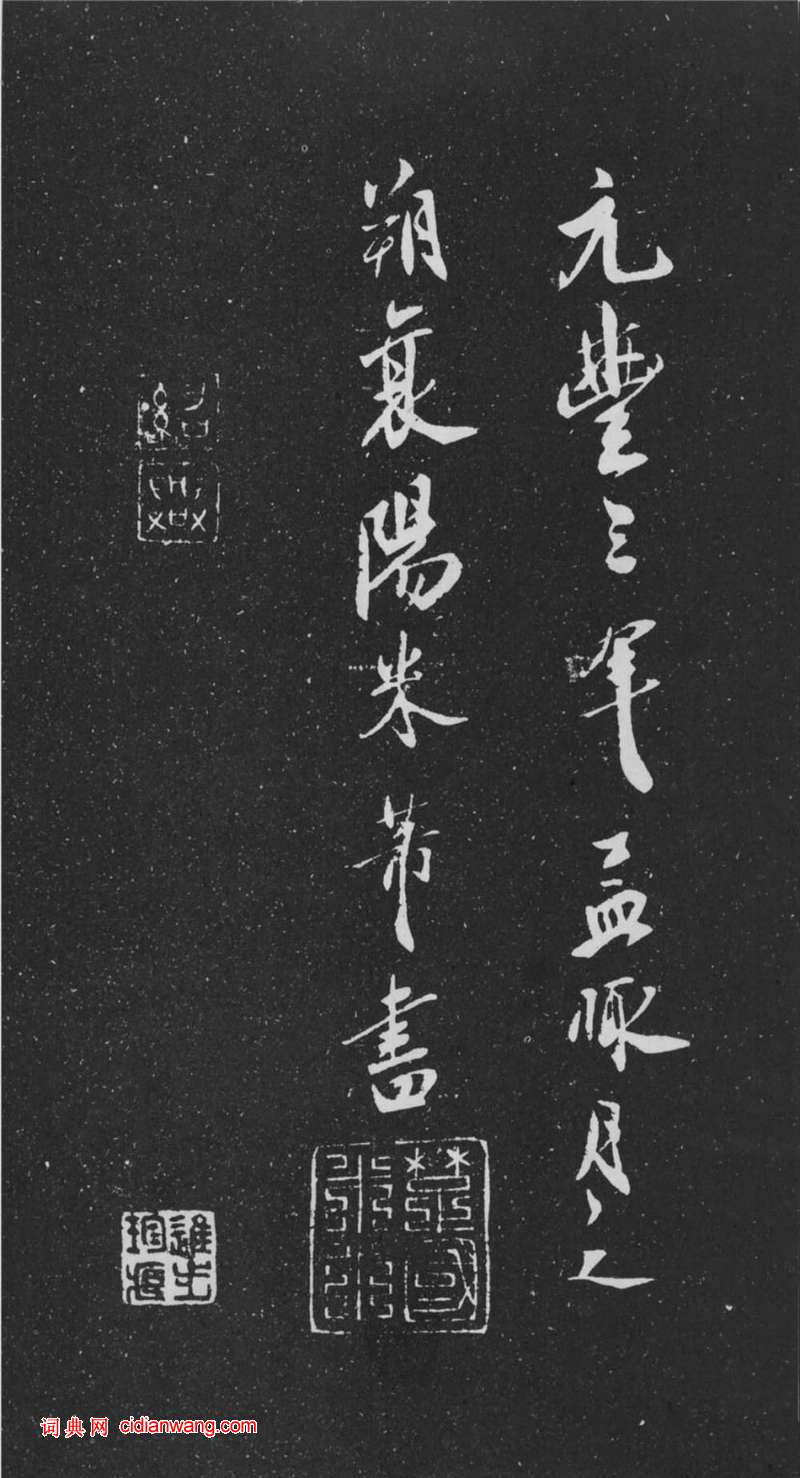 元豐三年孟陬月之
朔襄陽米芾書
词典网 cidianwang.com